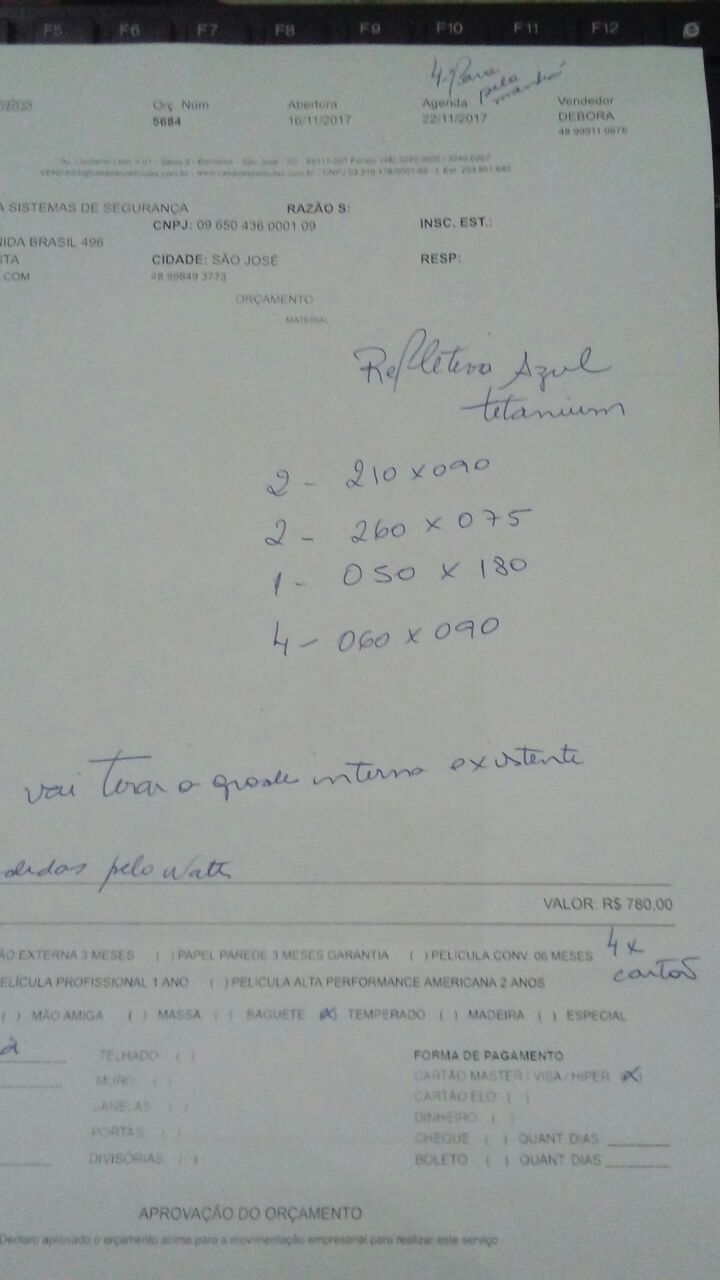 F5 F6 F7 F8 F9 F10 F11 F12
4ª Para pela manhã
Orç. Num Abertura Agenda Vendedor
5684 16/11/2017 22/11/2017 DEBORA
48 99911 0676
A SISTEMAS DE SEGURANÇA RAZÃO S:
CNPJ: 09 650 436 0001 09 INSC. EST.:
NIDA BRASIL 496
STA CIDADE: SÃO JOSÉ RESP:
COM 48 99849 3773
ORÇAMENTO
MATERIAL
Refletiva Azul
titanium
2 - 210 x 090
2 - 260 x 075
1 - 050 x 180
4 - 060 x 090
vai tirar a grade interna existente
didas pelo Wats
VALOR: R$ 780.00
ÃO EXTERNA 3 MESES ( ) PAPEL PAREDE 3 MESES GARANTIA ( ) PELÍCULA CONV. 06 MESES 4x
ELÍCULA PROFISSIONAL 1 ANO ( ) PELÍCULA ALTA PERFORMANCE AMERICANA 2 ANOS cartão
( ) MÃO AMIGA ( ) MASSA ( ) BAGUETE (x) TEMPERADO ( ) MADEIRA ( ) ESPECIAL
TELHADO ( ) FORMA DE PAGAMENTO
MURO ( ) CARTÃO MASTER / VISA / HIPER (x)
JANELAS ( ) CARTÃO ELO ( )
PORTAS ( ) DINHEIRO ( )
CHEQUE ( ) QUANT DIAS
DIVISÓRIAS ( ) BOLETO ( ) QUANT DIAS
APROVAÇÃO DO ORÇAMENTO
Declaro aprovado o orçamento acima para a movimentação empresarial para realizar este serviço